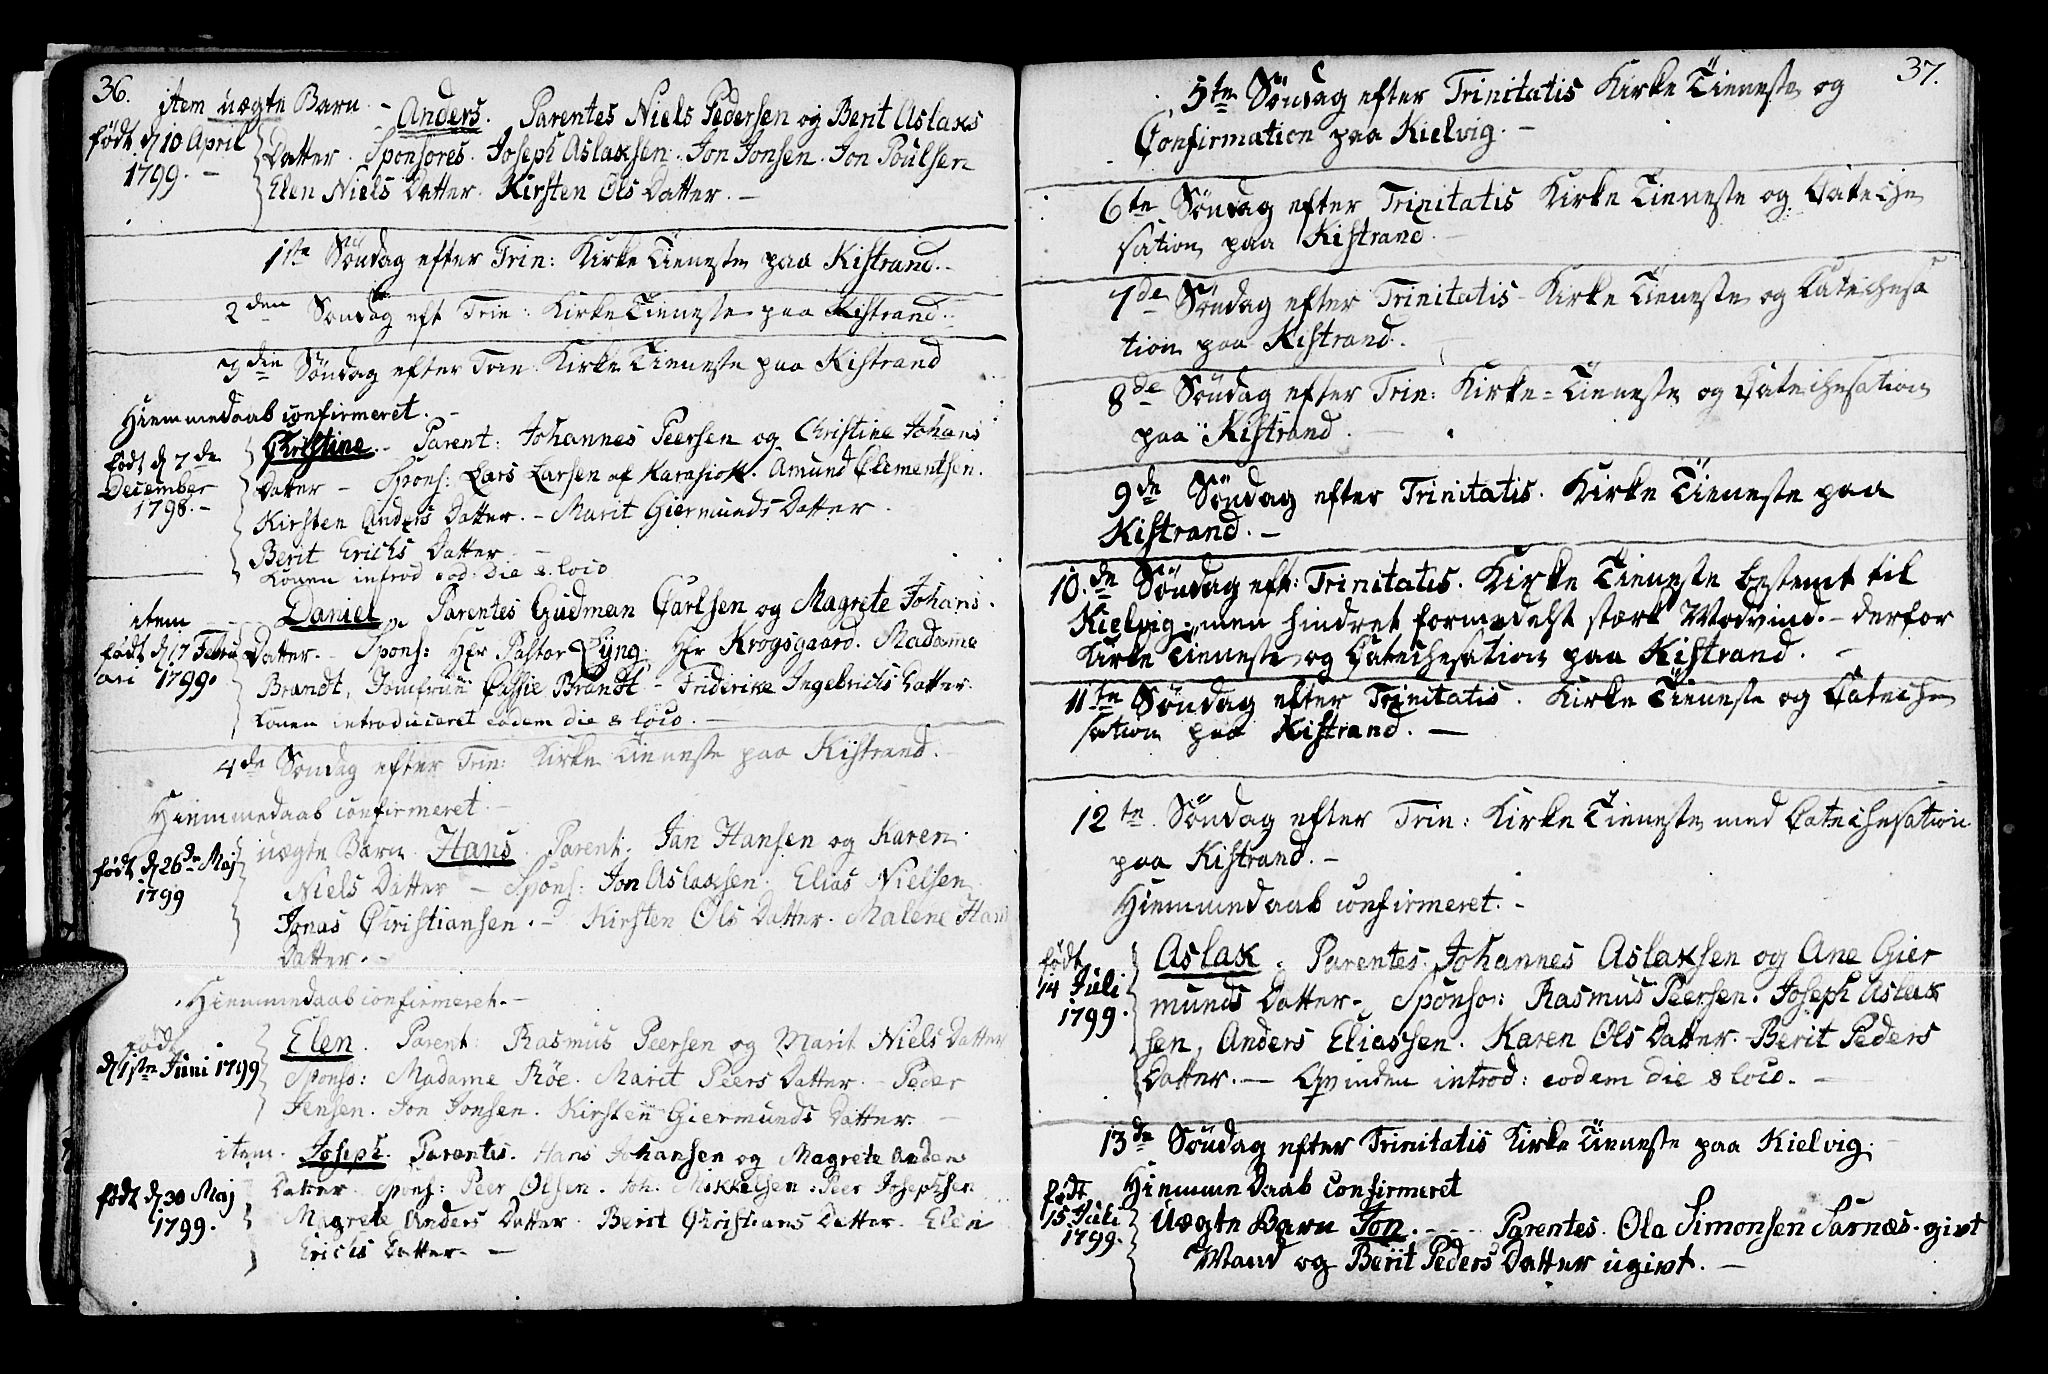 36.
item uægte Barn - Anders. Parentes Niels Pedersen og Berit Aslaks
født d 10 April
1799. -
Datter. Sponsores. Joseph Aslaksen. Jon Jonsen. Jon Poulsen
Elen Niels Datter. Kirsten Ols Datter. -
1ste Söndag efter Trin: Kirke Tieneste paa Kistrand. -
2den Söndag eft Trin: Kirke Tieneste paa Kistrand. -
3die Söndag efter Trin: Kirke Tieneste paa Kistrand
Hiemmedaab confirmeret. -
født d 7de
December
1798. -
Christine. - Parent: Johannes Peersen og Christine Johans
Datter - Spons: Lars Larsen af Karasiok. Amund Clementsen.
Kirsten Anders Datter. - Marit Giermunds Datter.
Berit Erichs Datter -
Konen introd. eod. die & loco
item
født d 17 Febru
ari 1799.
Daniel. Parentes Gudman Carlsen og Magrete Johans.
Datter. - Spons: Hr Pastor Lyng. Hr Krogsgaard. Madame
Brandt, Jomfrue Cissie Brandt - Friderike Ingebricts Datter.
Konen introduceret eodem die & loco. -
4de Söndag efter Trin: Kirke Tieneste paa Kistrand. -
Hiemmedaab confirmeret. -
født d 26de Maj
1799
uægte Barn Hans. Parent. Jan Hansen og Karen
Niels Datter - Spons: Jon Aslaksen. Elias Nielsen
Jonas Christiansen. - Kirsten Ols Datter. Malene Hans
Datter. -
Hiemmedaab confirmeret. -
født
d 1ste Juni 1799
Elen. Parent: Rasmus Peersen og Marit Niels Datter
Sponso: Madame Röe. Marit Peers Datter. - Peder
Jensen. Jon Jonsen. Kirsten Giermunds Datter. -
født d 30 Maj
1799.
item. Joseph. Parentes. Hans Johansen og Magrete Anders
Datter. Spons: Peer Olsen. Joh. Mikkelsen. Peer Josephsen
Magrete Anders Datter. Berit Christians Datter. Elen
Erichs Datter. -
37.
5te Söndag efter Trinitatis Kirke Tieneste og
Confirmation paa Kielvig. -
6te Söndag efter Trinitatis Kirke Tieneste og Cateche
sation paa Kistrand. -
7de Söndag efter Trinitatis Kirke Tieneste og Catechesa
tion paa Kistrand.
8de Söndag efter Trin: Kirke-Tieneste og Catechesation
paa Kistrand. -
9de Söndag efter Trinitatis. Kirke Tieneste paa
Kistrand. -
10.de Söndag eft: Trinitatis. Kirke Tieneste bestemt til
Kielvig, men hindret formedelst stærk Modvind. - derfor
Kirke Tieneste og Catechesation paa Kistrand. -
11te Söndag efter Trinitatis. Kirke Tieneste og Cateche
sation paa Kistrand. -
12te Söndag efter Trin: Kirke Tieneste med Catechesation
paa Kistrand. -
Hiemmedaab confirmeret. -
født
14 Juli
1799.
Aslak. Parentes. Johannes Aslaksen og Ane Gier
munds Datter. Sponso: Rasmus Peersen. Joseph Aslak
sen. Anders Eliassen. Karen Ols Datter. Berit Peders
Datter. - Qvinden introd: eodem die & loco. -
13de Söndag efter Trinitatis Kirke Tieneste paa Kielvig.
født
15 Juli
1799.
Hiemme Daab Confirmeret
Uægte Barn Jon. - - Parentes. Ola Simonsen Sarnæs. givt
Mand og Berit Peders Datter ugivt. -